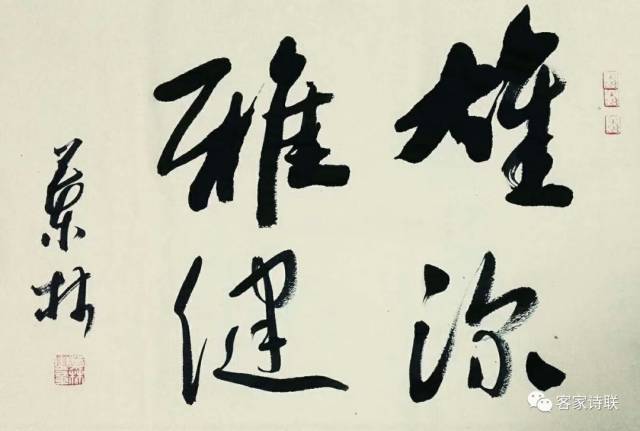 雄深
雅健
兰林
客家诗联